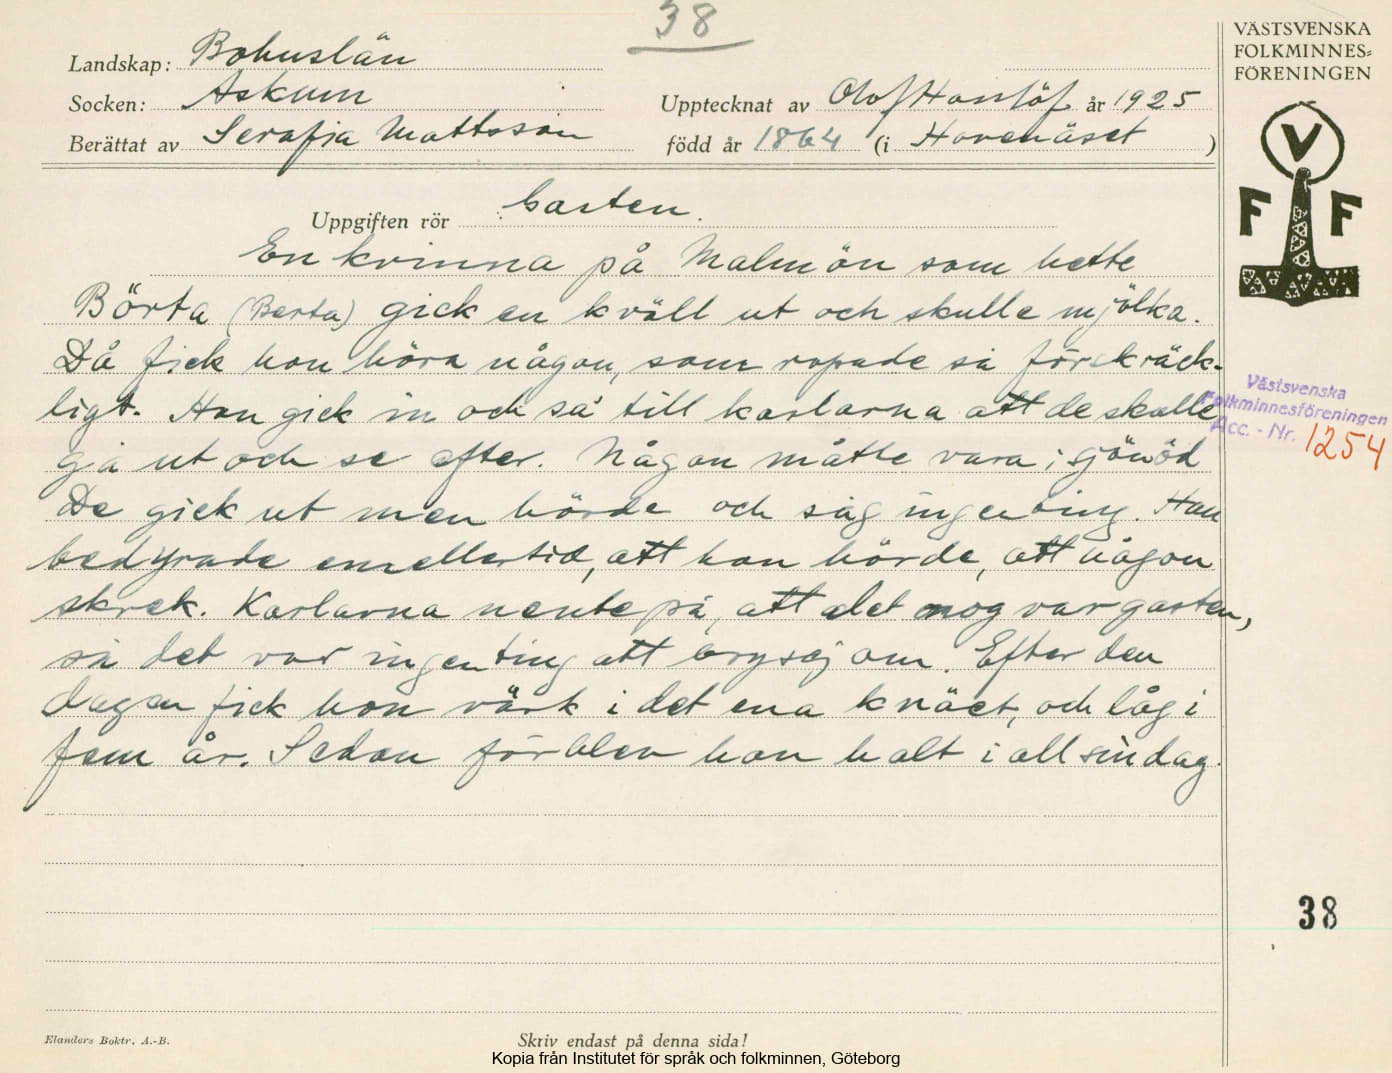 38
VÄSTSVENSKA
FOLKMINNES=
FÖRENINGEN
Landskap: Bohuslän
Socken: Askum
Upptecknat av Olof Hasslöf år 1925
Berättat av Serafia Mattsson född år 1864 (i Hovenäset )
V
F F
Uppgiften rör Gasten.
En kvinna på Malmön som hette
Börta (Berta) gick en kväll ut och skulle mjölka.
Då fick hon höra någon, som ropade så förskräck-
ligt. Hon gick in och sa' till karlarna att de skulle
gå ut och se efter. Någon måtte vara i sjönöd
De gick ut men hörde och såg ingenting. Hon
bedyrade emellertid, att hon hörde, att någon
skrek. Karlarna nente på, att det nog var gasten,
så det var ingenting att bry sej om. Efter den
dagen fick hon värk i det ena knäet, och låg i
fem år. Sedan förblev hon halt i all sin dag.
Västsvenska
Folkminnesföreningen
Acc. - Nr. 1254
38
Elanders Boktr. A.-B.
Skriv endast på denna sida!
Kopia från Institutet för språk och folkminnen, Göteborg